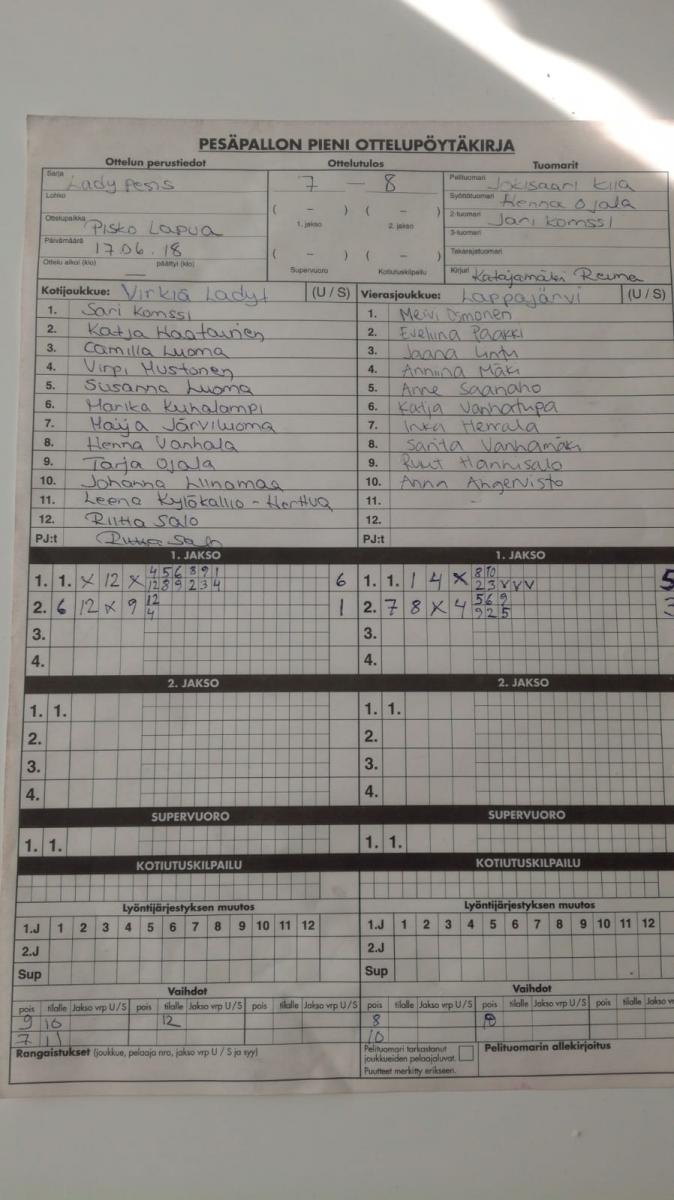 PESÄPALLON PIENI OTTELUPÖYTÄKIRJA
Ottelun perustiedot Ottelutulos Tuomarit
Sarja Lady pesis
Lohko
Ottelupaikka Pisko Lapua
Päivämäärä 17.06.18
Ottelu alkoi (klo) — päättyi (klo)
7 – 8
( – ) ( – )
1. jakso 2. jakso
( – ) ( – )
Supervuoro Kotiutuskilpailu
Pelituomari Jokisaari
Syöttötuomari Henna Ojala
2-tuomari Jari Komssi
3-tuomari
Takarajatuomari
Kirjuri Katajamäki Reima
Kotijoukkue: Virkiä Ladyt (U / S)
1. Sari Komssi
2. Katja Haatainen
3. Camilla Luoma
4. Virpi Mustonen
5. Susanna Luoma
6. Marika Kuhalampi
7. Maija Järviluoma
8. Henna Vanhala
9. Tarja Ojala
10. Johanna Liinamaa
11. Leena Kylökallio - Herttua
12. Riitta Salo
PJ:t Riitta Salo
Vierasjoukkue: Lappajärvi (U / S)
1. Meivi Osmonen
2. Eveliina Paakki
3. Jaana Lintu
4. Anniina Mäki
5. Anne Saanaho
6. Katja Vanhatupa
7. Inka Herrala
8. Sarita Vanhamäki
9. Ruut Hannusalo
10. Anna Angervisto
11. -
12.
PJ:t
1. JAKSO 1. JAKSO
1. 1. x 12 x 4 5 6 8 9 1 6
12 8 9 2 3 4
2. 6 12 x 9 12 1
4
3.
4.
1. 1. 1 4 x 8 10 5
2 3 v v v
2. 7 8 x 4 5 6 9 3
9 2 5
3.
4.
2. JAKSO 2. JAKSO
1. 1. 1. 1.
2. 2.
3. 3.
4. 4.
SUPERVUORO SUPERVUORO
1. 1. 1. 1.
KOTIUTUSKILPAILU KOTIUTUSKILPAILU
Lyöntijärjestyksen muutos Lyöntijärjestyksen muutos
1.J 1 2 3 4 5 6 7 8 9 10 11 12 1.J 1 2 3 4 5 6 7 8 9 10 11 12
2.J 2.J
Sup Sup
Vaihdot Vaihdot
pois tilalle Jakso vrp U/S pois tilalle Jakso vrp U/S pois tilalle Jakso vrp U/S pois tilalle Jakso vrp U/S pois tilalle Jakso vrp U/S pois tilalle Jakso
9 10 12 8
7 11 10
Rangaistukset (joukkue, pelaaja nro, jakso vrp U / S ja syy)
Pelituomari tarkastanut
joukkueiden pelaajaluvat.
Puutteet merkitty erikseen.
Pelituomarin allekirjoitus